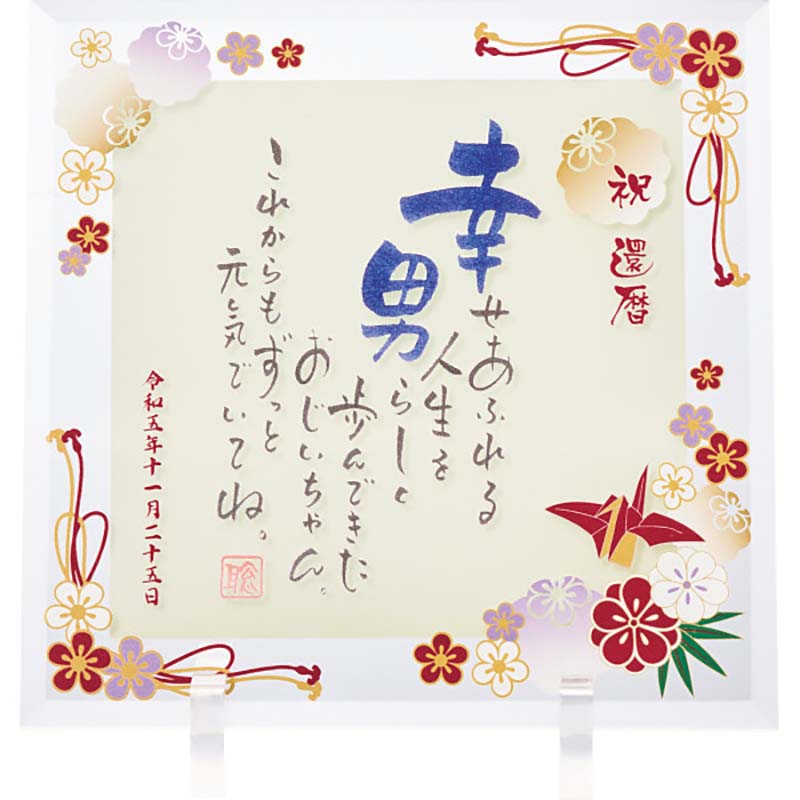 祝
還暦
幸せあふれる
人生を
男らしく
歩んできた
おじいちゃん。
これからもずっと
元気でいてね。
聡
令和五年十一月二十五日